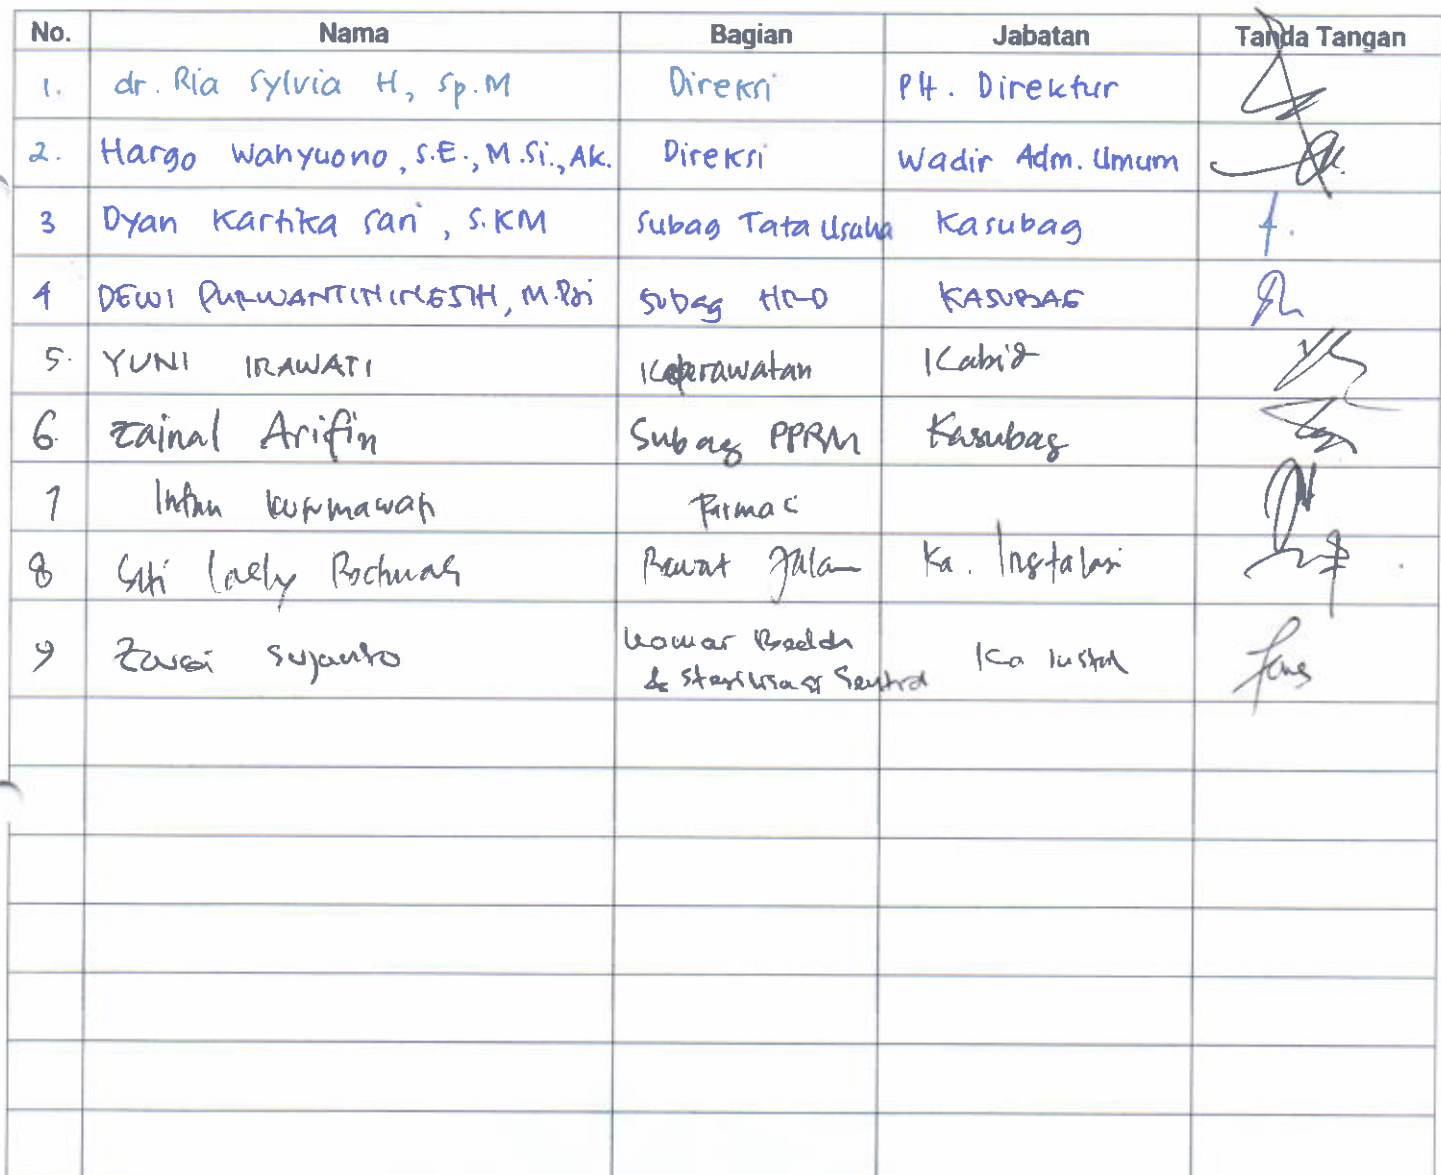 No. Nama Bagian Jabatan Tanda Tangan
1. dr. Ria Sylvia H, Sp.M Direksi Plt. Direktur
2. Hargo Wahyuono, S.E., M.Si., Ak. Direksi Wadir Adm. Umum
3 Dyan Kartika Sari, S.KM Subag Tata Usaha Kasubag
4 DEWI M.Psi Subag HRD KASUBAG
5. YUNI IRAWATI Keperawatan Kabid
6. Zainal Arifin Subag PPRM Kasubag
7 Intan Kusumawati Farmasi
8 Siti Laely Rawat Jalan Ka. Instalasi
9 Sujanto Kamar Bedah Ka Instal
& Sterilisasi Sentral